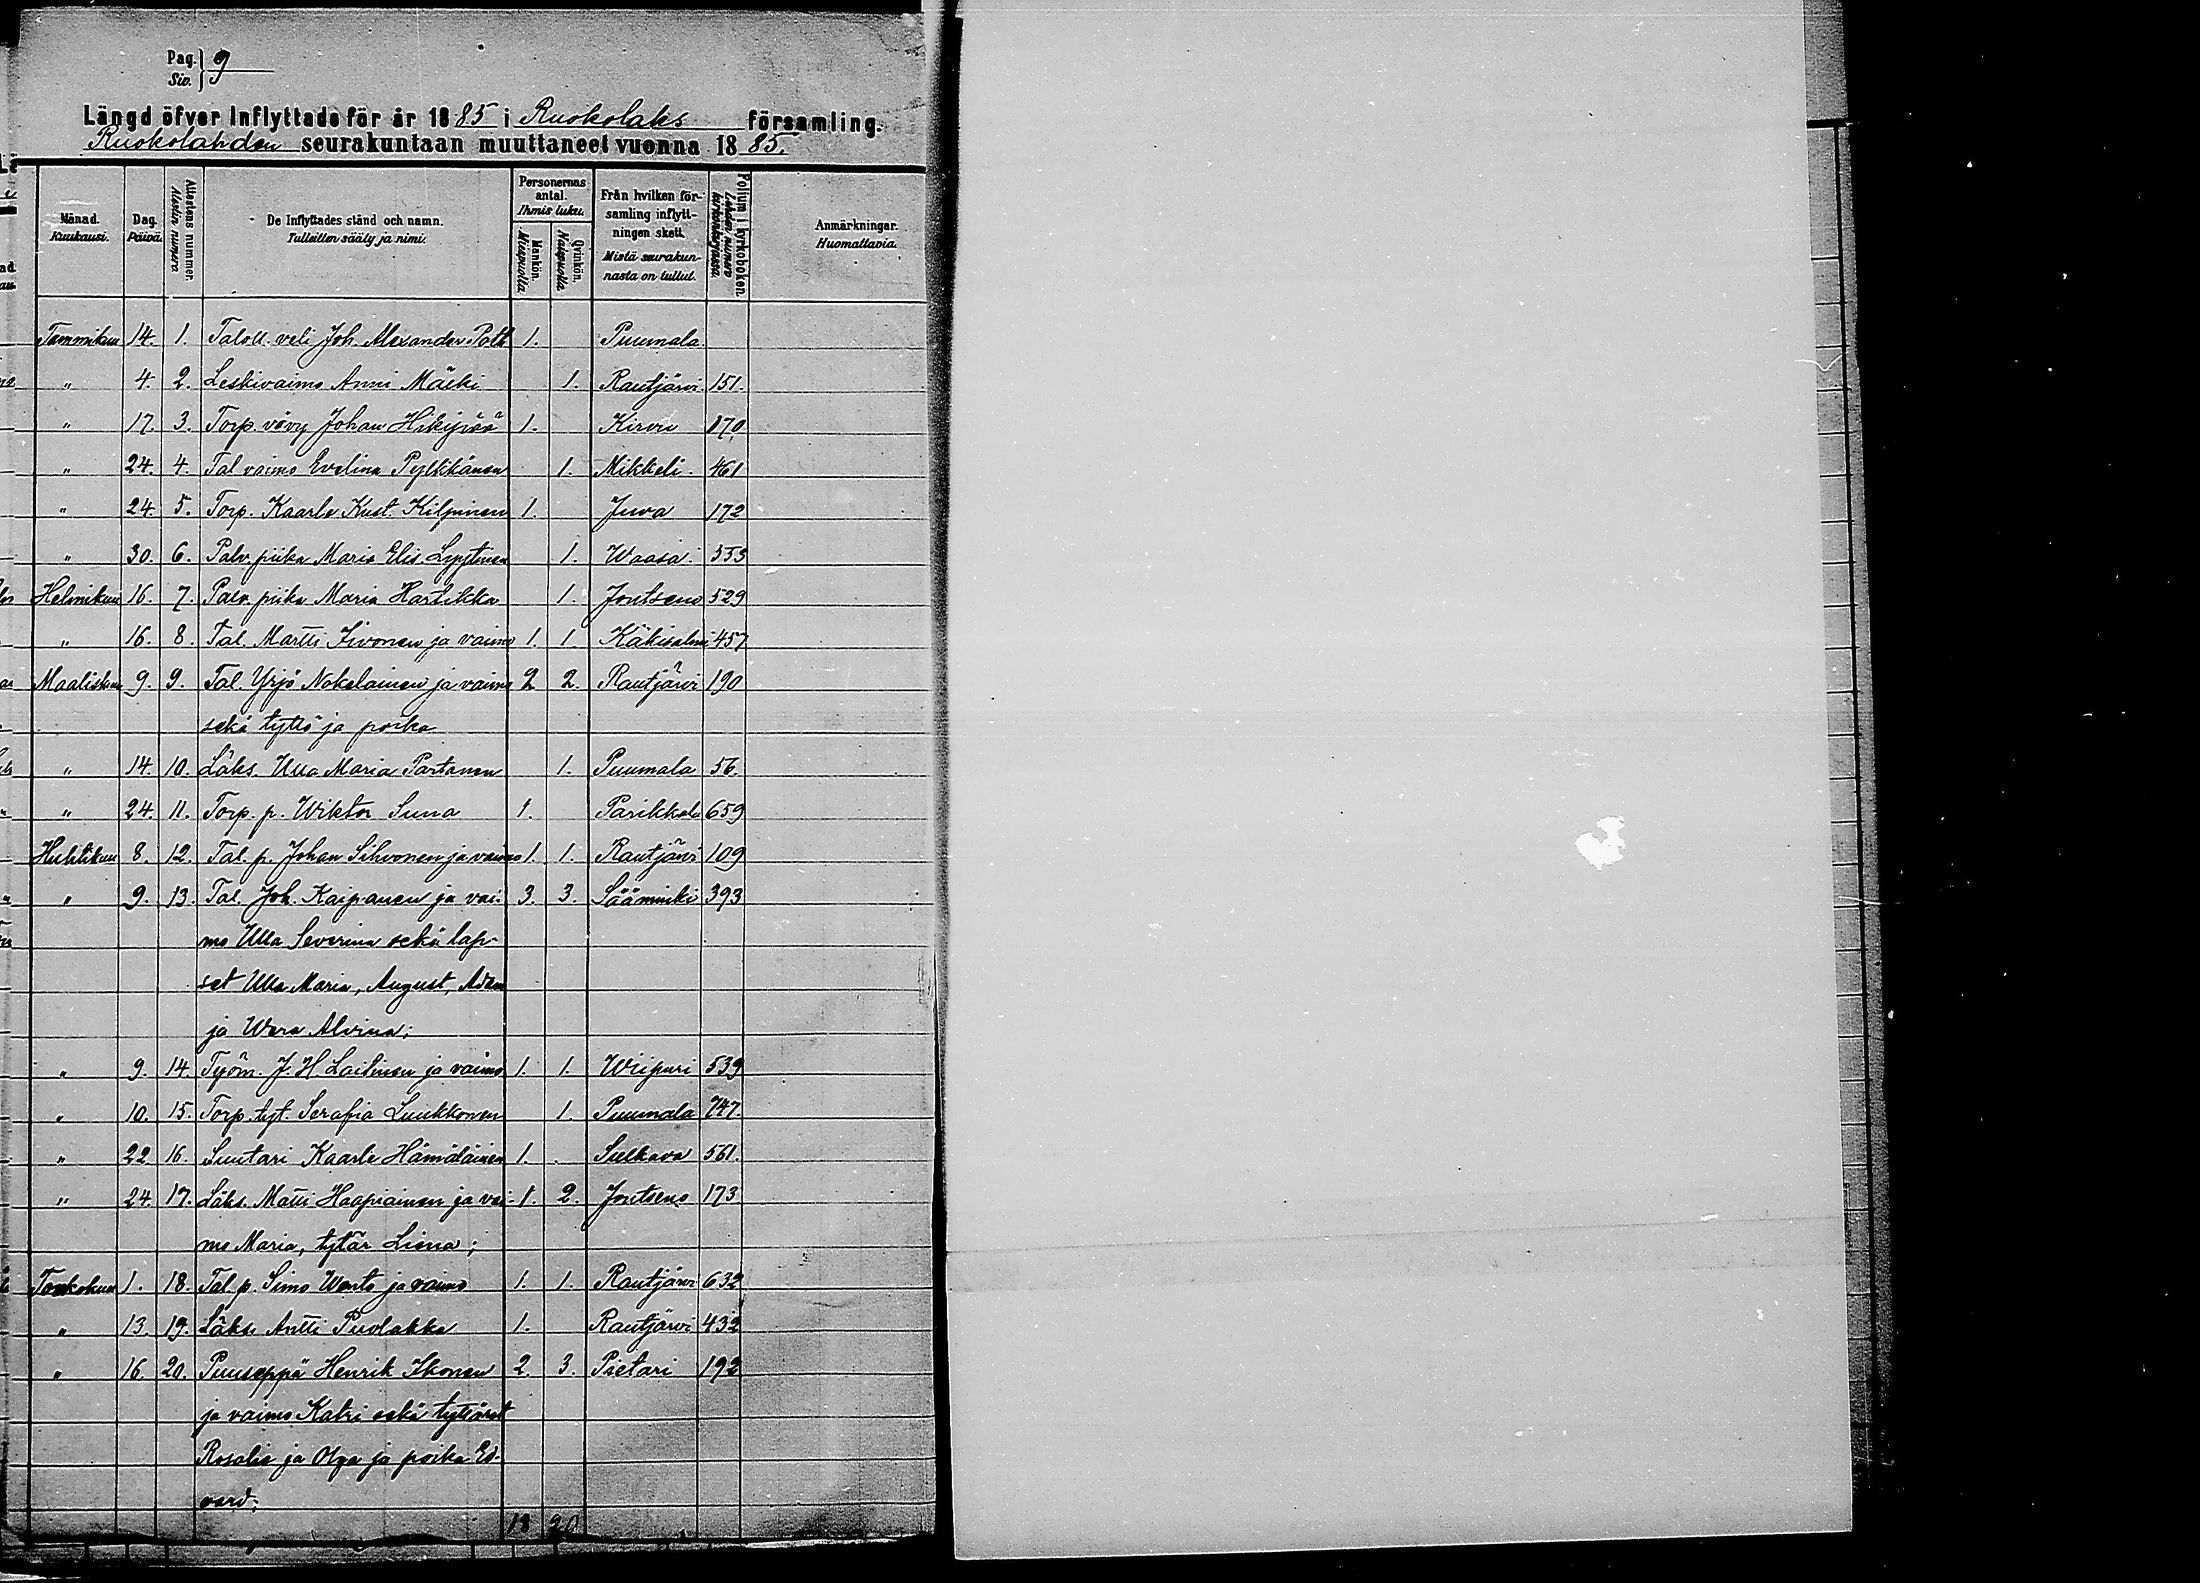 Pag. Siv. } 9
Längd öfver Inflyttade för år 1885 i Ruokolaks församling.
Ruokolahden seurakuntaan muuttaneet vuonna 1885.
Månad. Kuukausi. Dag. Päivä. Attestens nummer. Alestin numera De Inflyttades stånd och namn. Tulleitten sääty ja nimi. Personernas antal. Ihmis luku. Mankön. Miespuolia Qvinkön. Naispuolia Från hvilken församling inflyttningen skett. Mistä seurakunnasta on tullut. Folium i kyrkoboken Lehden numer kirkonkirjassa. Anmärkningar. Huomattavia.
Tammikuu 14. 1. Taloll. veli Joh. Alexander 1. Puumala
" 4. 2. Leskivaimo Anni Mäeki 1. Rautjärvi 151.
" 17. 3. Torp. vävy Johan 1. Kirvu 170
" 24. 4. Tal vaimo Evelina Pylkkänen 1. Mikkeli. 461
" 24. 5. Torp. Kaarle Kust. Kilpinen 1. Juva 172
" 30. 6. Palv. piika Maria Elis. Lyytinen 1. Waasa. 553
Helmikuu 16. 7. Palv. piika Maria Hartikka 1. Joutseno 529
" 16. 8. Tal. Martti Iivonen ja vaimo 1. 1. Käkisalmi 457
Maaliskuu 9. 9. Tal. Yrjö Nokelainen ja vaimo 2 2. Rautjärvi 190
sekä tyttö ja poika
" 14. 10. Läks. Ulla Maria Partanen 1. Puumala 56.
" 24. 11. Torp. p. Wiktor Suna 1. Parikkala 659
Huhtikuu 8. 12. Tal. p. Johan Sihvonen ja vaimo 1. 1. Rautjärvi 109
" 9. 13. Tal. Joh. Kaipanen ja vai- 3. 3. Sääminki 393
mo Ulla Severina sekä lap-
set Ulla Maria, August, Adam
ja Wera Alvina;
" 9. 14. Työm. J. H. Laitinen ja vaimo 1. 1. Wiipuri 539
" 10. 15. Torp. tyt. Serafia Luukkonen 1. Puumala 747.
" 22 16. Suutari Kaarle Hämäläinen 1. Sulkava 561.
" 24. 17. Läks. Matti Haapiainen ja vai- 1. 2. Joutseno 173
mo Maria, tytär Liena;
Toukokuu 1. 18. Tal. p. Simo ja vaimo 1. 1. Rautjärvi 632
" 13. 19. Läks Antti Puolakka 1. Rautjärvi 432
" 16. 20. Puuseppä Henrik Ikonen 2. 3. Pietari 192
ja vaimo Katri sekä tyttäret
Rosalia ja Olga ja poika Ed-
vard;
18 20